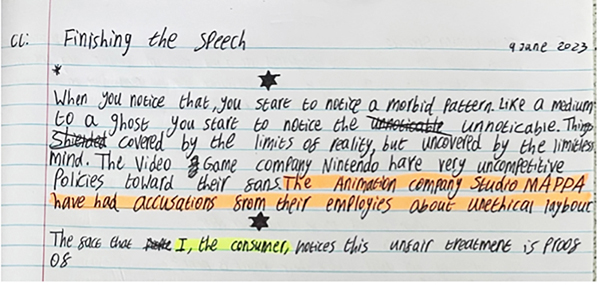 CL: Finishing the Speech 9 June 2023
*
When you notice that, you start to notice a morbid pattern. Like a medium
to a ghost you start to notice the unnoticable unnoticable. Things
Shielded covered by the limits of reality, but uncovered by the limitless
mind. The Video Game company Nintendo have very uncompetitive
Policies toward their fans. The Animation company Studio MAPPA
have had accusations from their employies about unethical laybour
The fact that I, the consumer, notices this unfair treatment is proof
of